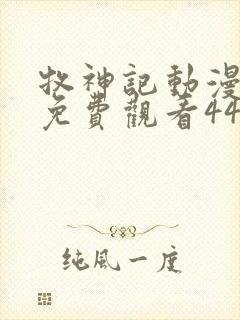 牧神記動漫
免費觀看44
純風一度